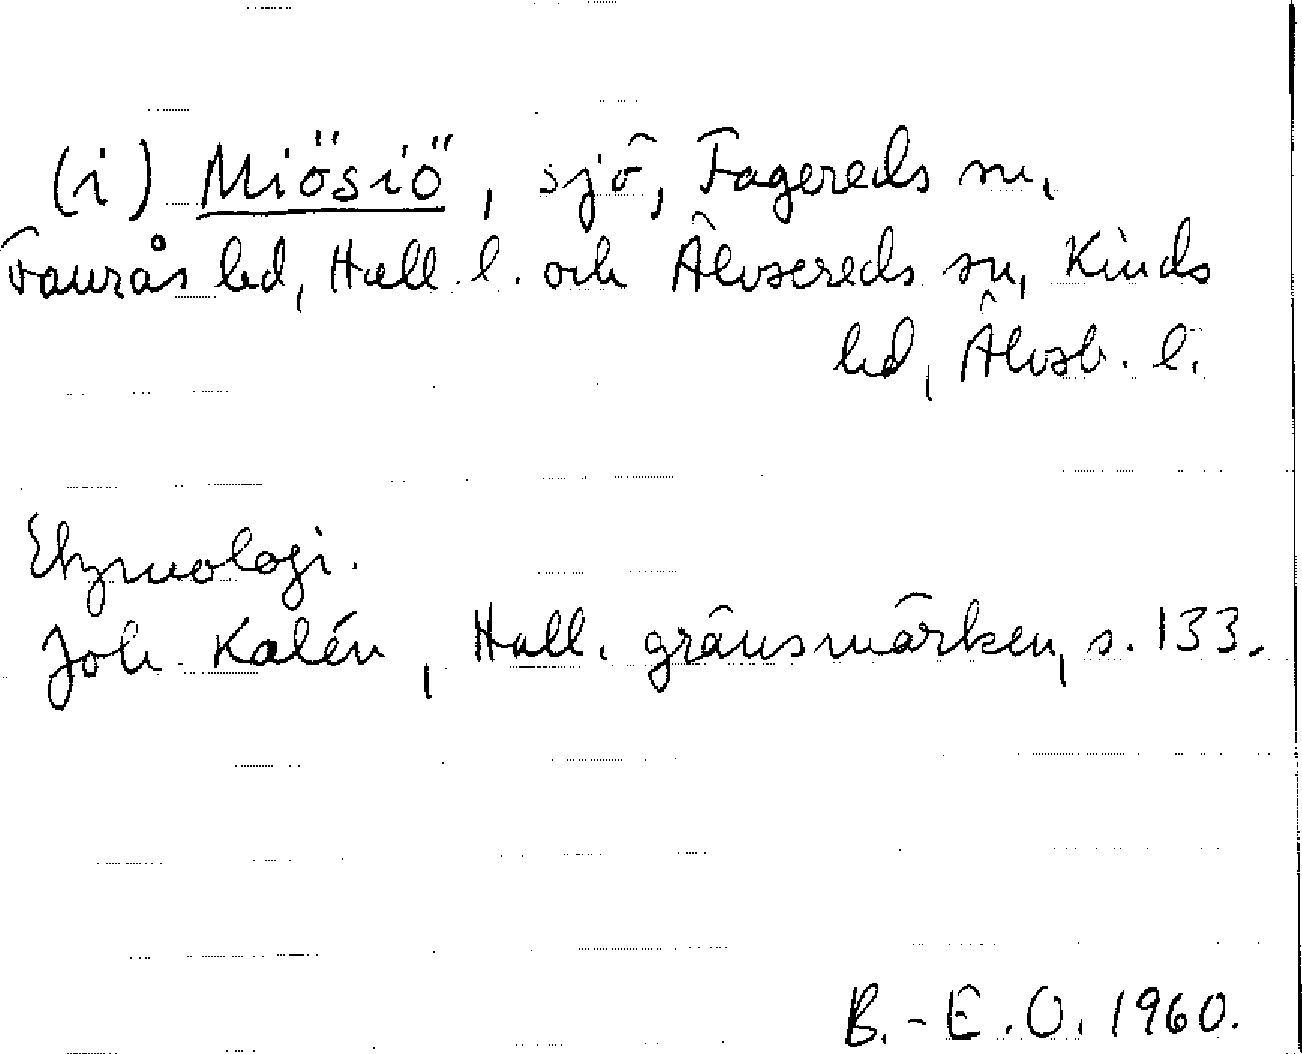 (i) Miösiö, sjö, Fagereds sn,
Faurås hd, Hall. l. och Älvsereds sn, Kinds
hd, Älvsb. l.
Etymologi.
Joh. Kalén, Hall. gränsmärken, s. 133.
B.-E.O. 1960.